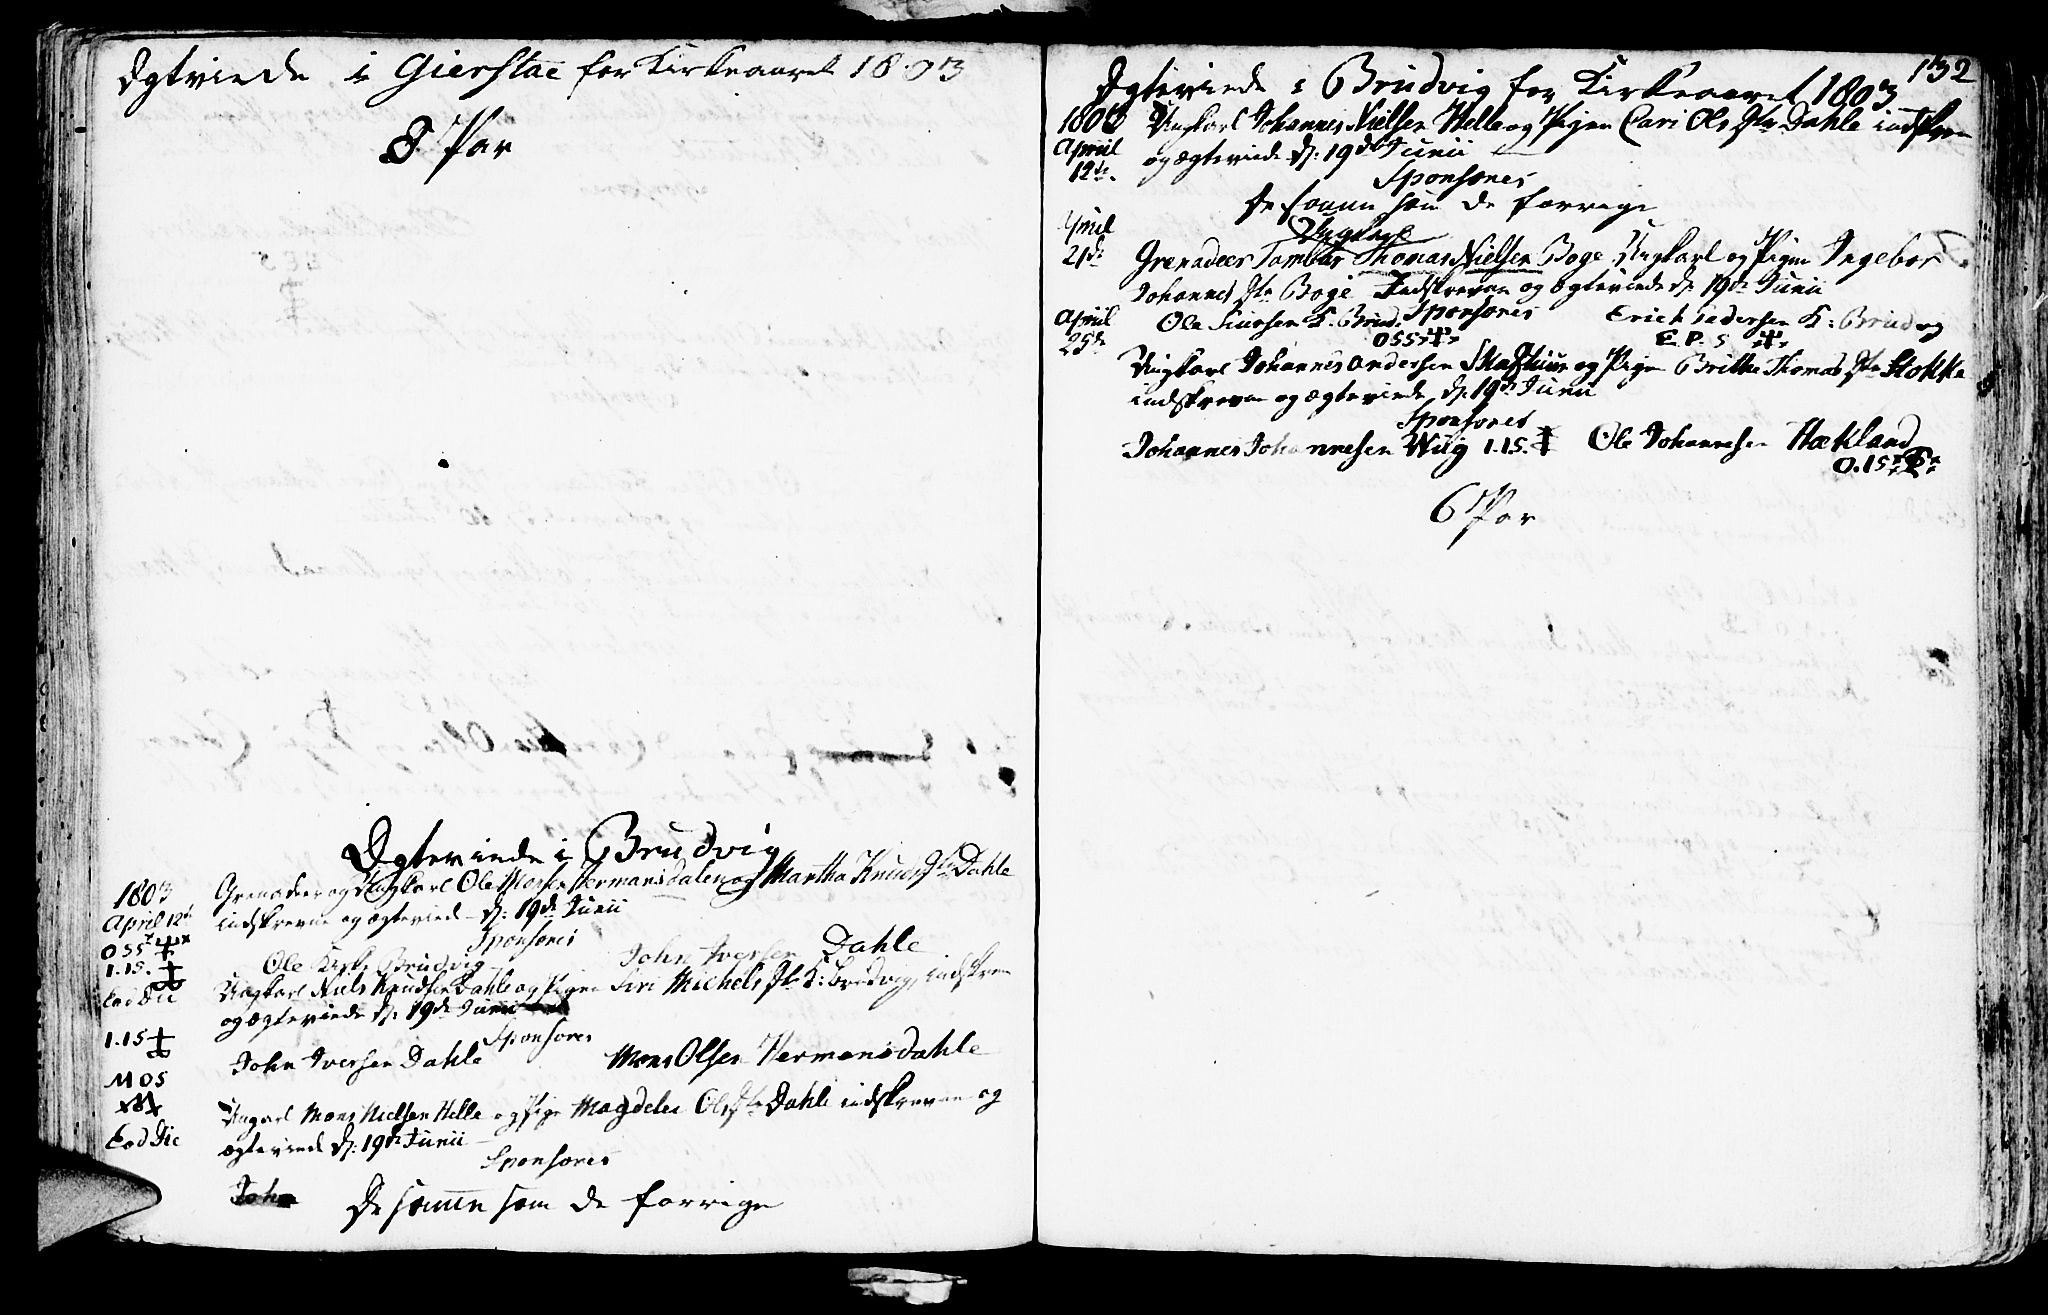 Ægtviede i Gierstad for Kirkeaaret 1803
8 Par
Ægteviede i Brudvig
1803
April 12te
Grenadeer og Ungkarl Ole Monsen Hermansdalen og Martha Knuds Dtr Dahle
indskrevne og ægteviede d: 19de Junii
Sponsores
OSS
Ole Kirke Brudvig John Iversen Dahle
I.I.S.
Eod Die
Ungkarl Niels Knudsen Dahle og Pigen Siri Michels Dtr K: Brudvig, indskrevne
og ægteviede d: 19de Junii
Sponsores
I.I.S
John Iversen Dahle Mons Olsen Hermansdahle
MOS
Ungkarl Mons Nielsen Helle og Pige Magdele Ols Dtr Dahle indskrevne og
Eod Die
ægteviede d: 19de Junii
Sponsores
John De samme som de forrige
132
Ægteviede i Brudvig for Kirkeaaret 1803
1803
April
12te
Ungkarl Johannes Nielsen Helle og Pigen Cari Ols Dtr Dahle indskrevne
og ægteviede d: 19de Junii
Sponsores
De samme som de forrige
April
21de
Ungkarl
Grenadeer Tambur Thomas Nielsen Boge Ungkarl og Pigen Ingebor
Johannes Dtr Boge Indskrevne og ægteviede d: 19de Junii
Sponsores
April
25de
Ole Siursen K: Brud. Erick Pedersen K: Brudvig
OSS E.P.S
Ungkarl Johannes Andersen Skaftun og Pigen Britha Thomas Dtr Stokke
indskrevne og ægteviede d: 19de Junii
Sponsores
Johannes Johannesen Wiig I.I.S. Ole Johannesen Hækland
O.I.S
6 Par